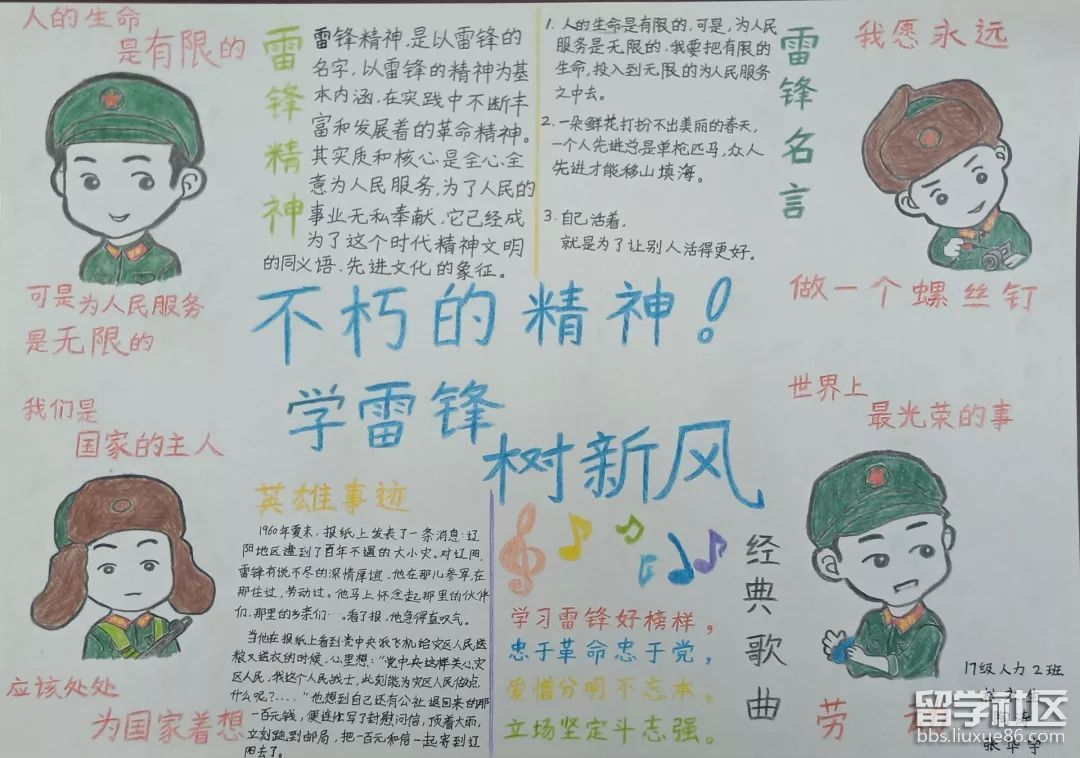 人的生命
是有限的
可是为人民服务
是无限的
雷锋精神
雷锋精神,是以雷锋的
名字,以雷锋的精神为基
本内涵,在实践中不断丰
富和发展着的革命精神。
其实质和核心是全心全
意为人民服务,为了人民的
事业无私奉献,它已经成
为了这个时代精神文明
的同义语、先进文化的象征。
1. 人的生命是有限的,可是,为人民
服务是无限的,我要把有限的
生命,投入到无限的为人民服务
之中去。
2. 一朵鲜花打扮不出美丽的春天,
一个人先进总是单枪匹马,众人
先进才能移山填海。
3. 自己活着,
就是为了让别人活得更好。
雷锋名言
我愿永远
做一个螺丝钉
不朽的精神!
学雷锋
树新风
我们是
国家的主人
应该处处
为国家着想
英雄事迹
1960年夏末,报纸上发表了一条消息:辽
阳地区遭到了百年不遇的大小灾。对辽阳,
雷锋有说不尽的深情厚谊,他在那儿参军,在
那住过,劳动过。他马上怀念起那里的伙伴
们,那里的乡亲们…。看了报,他急得直叹气。
当他在报纸上看到党中央派飞机给灾区人民送
粮又送衣的时候,心里想:“党中央这样关心灾
区人民,我这个人民战士,此刻能为灾区人民做点
什么呢?....”他想到自己还有公社退回来的那
一百元钱,便连忙写了封慰问信,顶着大雨,
立刻跑到邮局,把一百元和信一起寄到辽
阳去了。
学习雷锋好榜样,
忠于革命忠于党,
爱憎分明不忘本,
立场坚定斗志强。
经典歌曲
世界上
最光荣的事
劳
17级人力2班
张华宇
留学社区
bbs.liuxue86.com